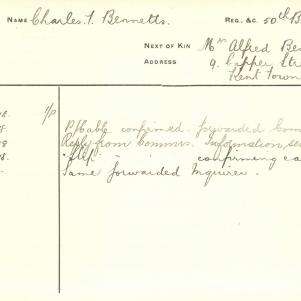 NAME Charles T. Bennetts. REG. &C. 50th B
NEXT OF KIN Mr Alfred Be
ADDRESS 9. Capper Str
Kent Town
confirmed. forwaided Com
Reply from Commr. Information se
confirming ca
Same forwaided Inquirer.